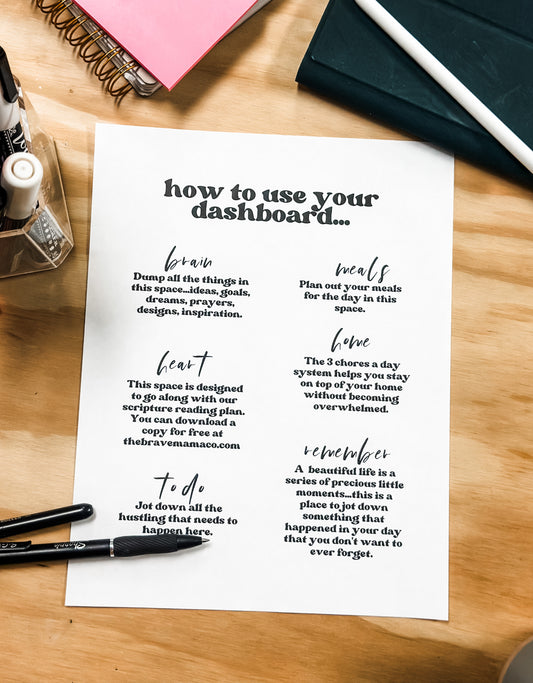 how to use your
dashboard...
brain
Dump all the things in
this space...ideas, goals,
dreams, prayers,
designs, inspiration.
heart
This space is designed
to go along with our
scripture reading plan.
You can download a
copy for free at
thebravemamaco.com
to do
Jot down all the
hustling that needs to
happen here.
meals
Plan out your meals
for the day in this
space.
home
The 3 chores a day
system helps you stay
on top of your home
without becoming
overwhelmed.
remember
A beautiful life is a
series of precious little
moments...this is a
place to jot down
something that
happened in your day
that you don't want to
ever forget.